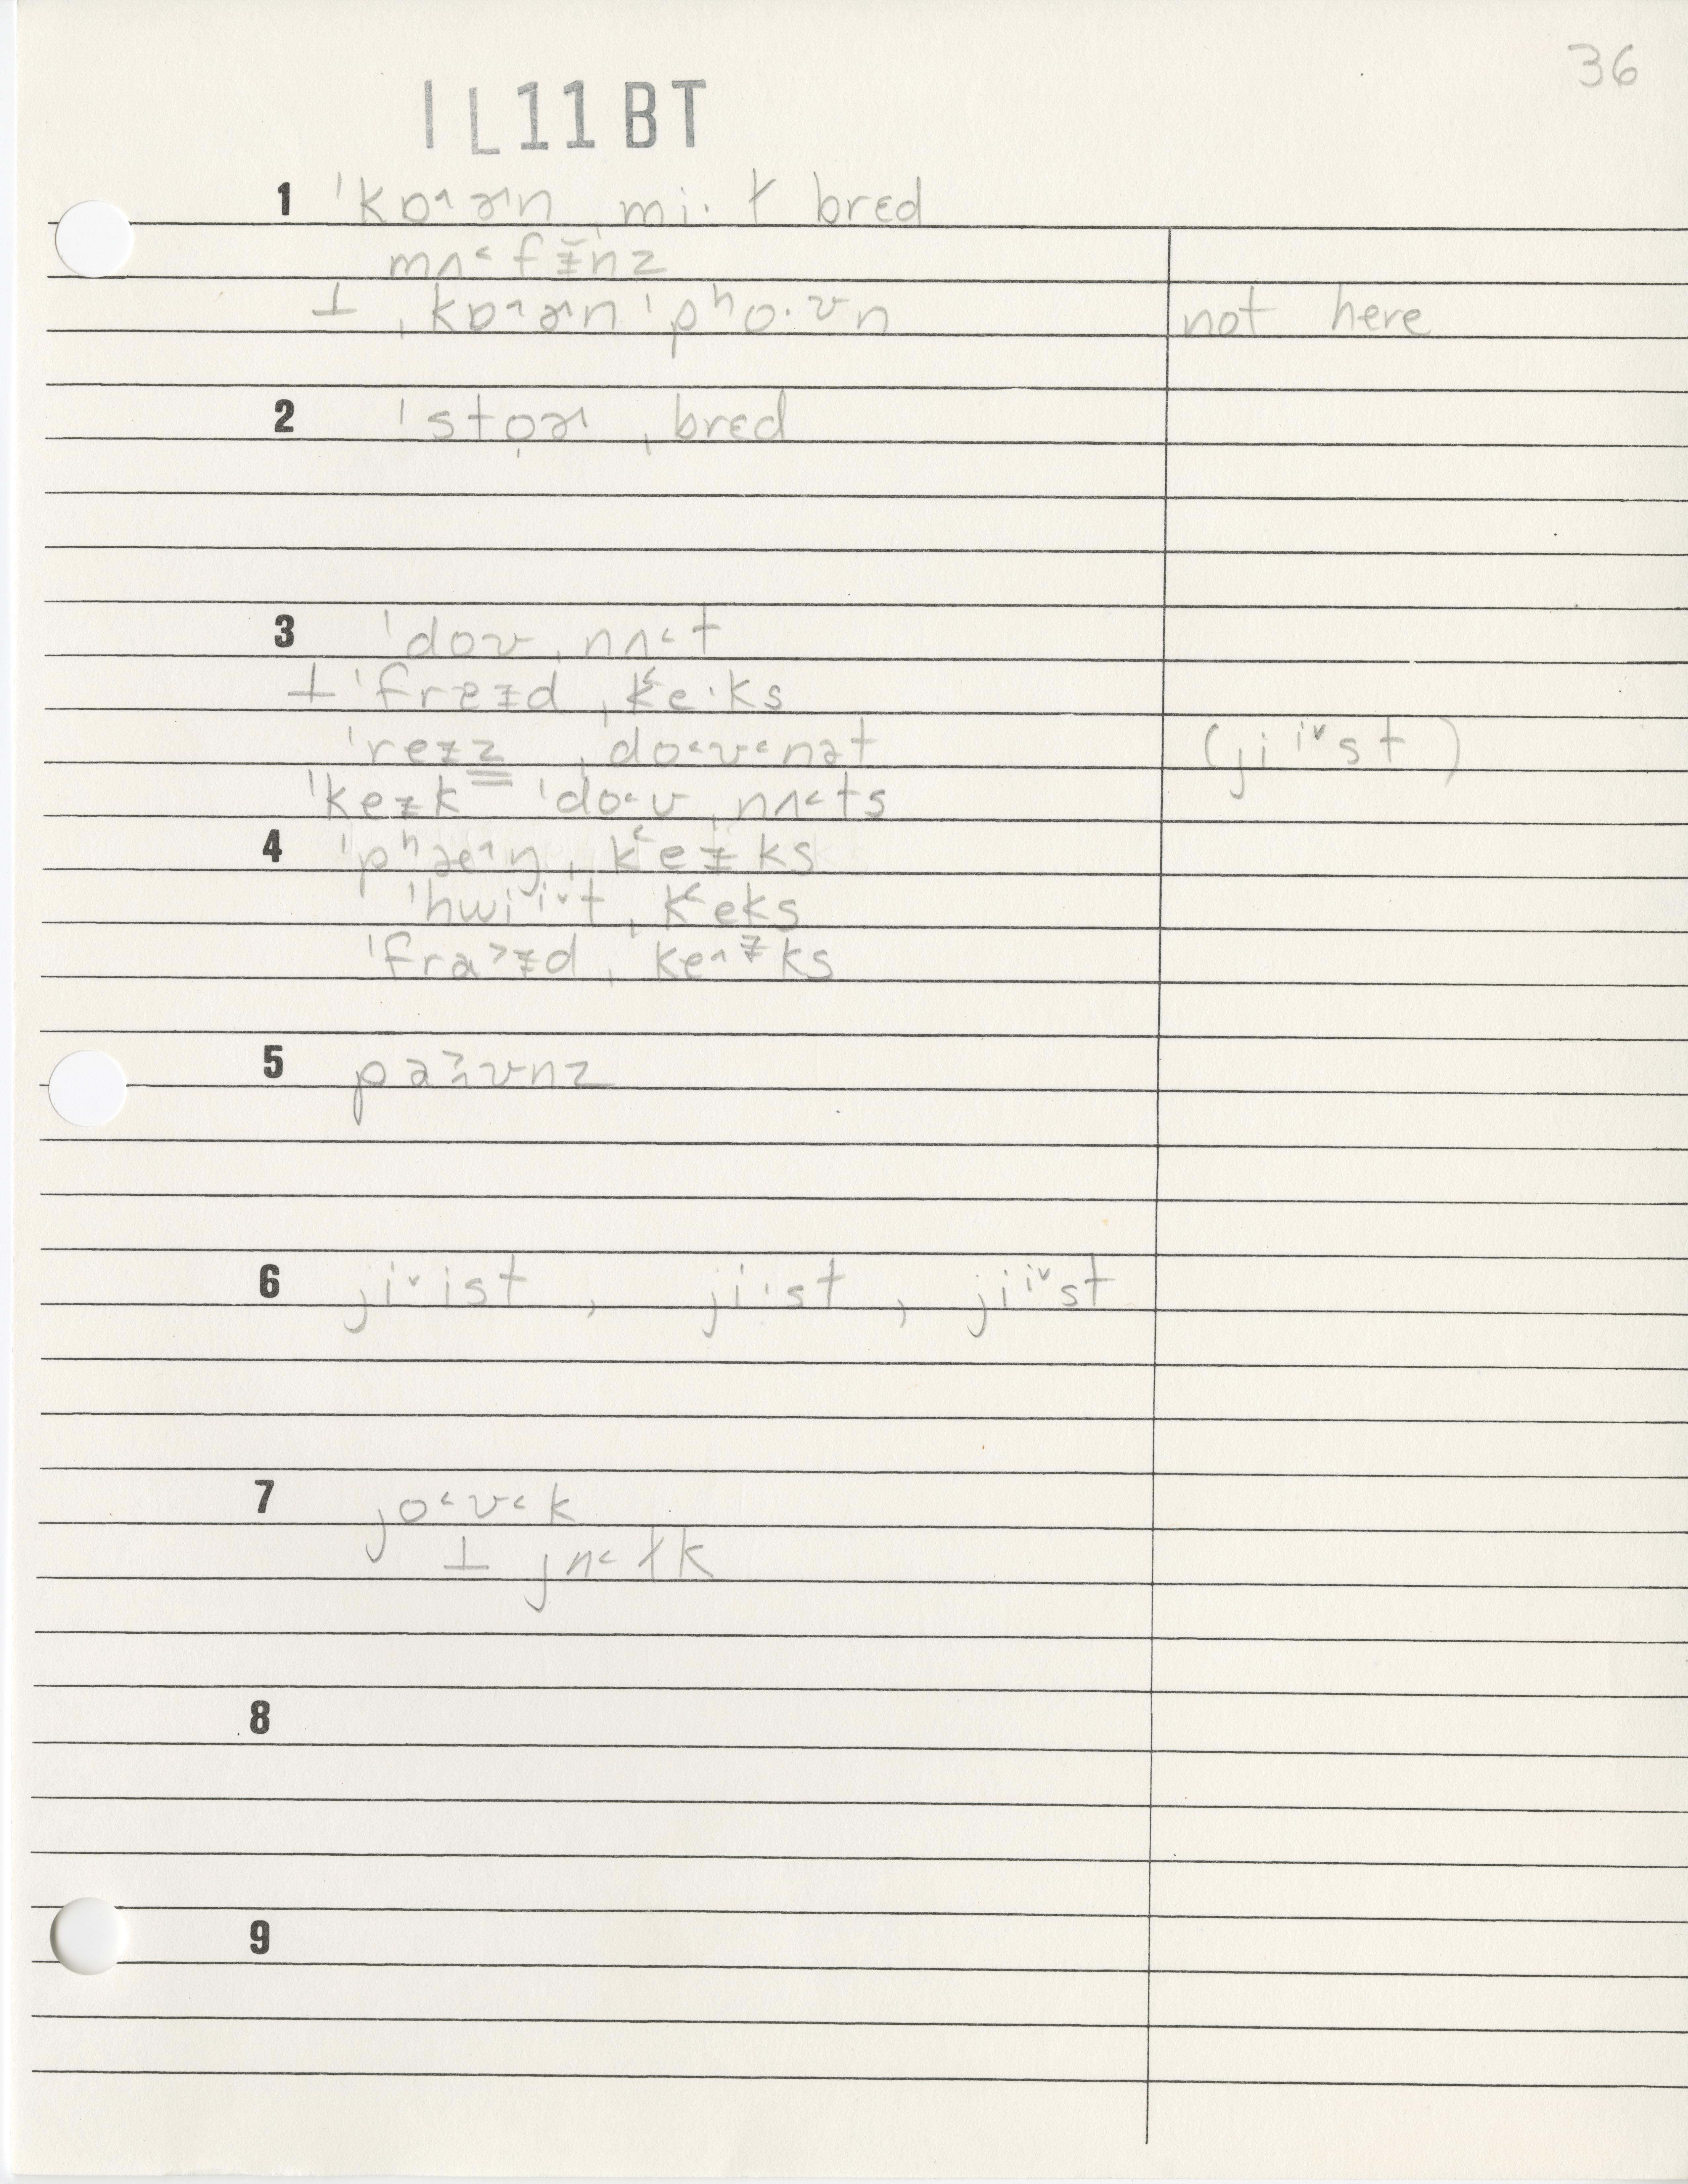 36
IL11BT
1 ˈkɒ˄ɚn ˌmi·ɫ brɛd
mʌ˂fɪ̵̆nz
⊥ ˌkɒ˄ɚn ˈpʰo·ʊn not here
2 ˈsto̩ɚ ˌbrɛd
3 ˈdoʊ ˌnʌ˂t
⊥ ˈfrɐɪ̵d ˌk˂e·ks
ˈreɪ̵z̳ ˌdo˂ʊ˂nət (jiⁱ˅st)
ˈkeɪ̵k ˈdo˂ʊ ˌnʌ˂ts
4 ˈpʰæ˄n ˌk˂eɪ̵ks
ˈhwiⁱ˅t ˌk˂eks
ˈfra˃ɪ̵d ˌke˄ɪ̵ks
5 pa˃ʊnz
6 ji˅ist , ji·st , jiⁱ˅st
7 jo˂ʊ˂k
⊥ jʌ˂ɫk
8
9